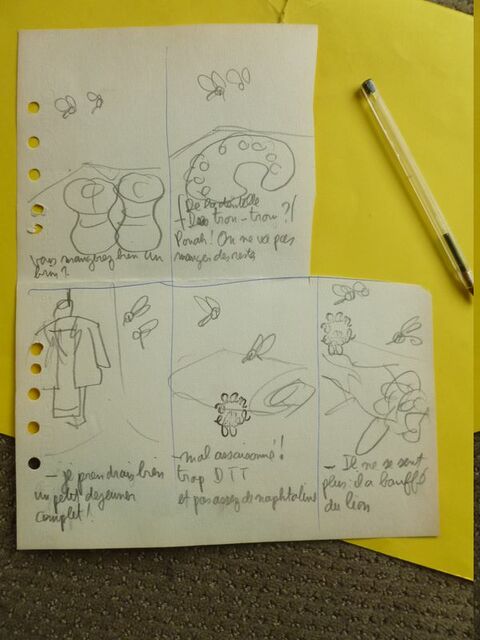 Vous mangerez bien un
brin?
- De la dentelle
- Des trou-trou?!
Pouah! On ne va pas
manger des restes
- Je prendrais bien
un petit dejeuner
complet!
- mal assaisonné!
trop DTT
et pas assez de naphtaline
- Il ne se sent
plus: il a bouffé
du lion